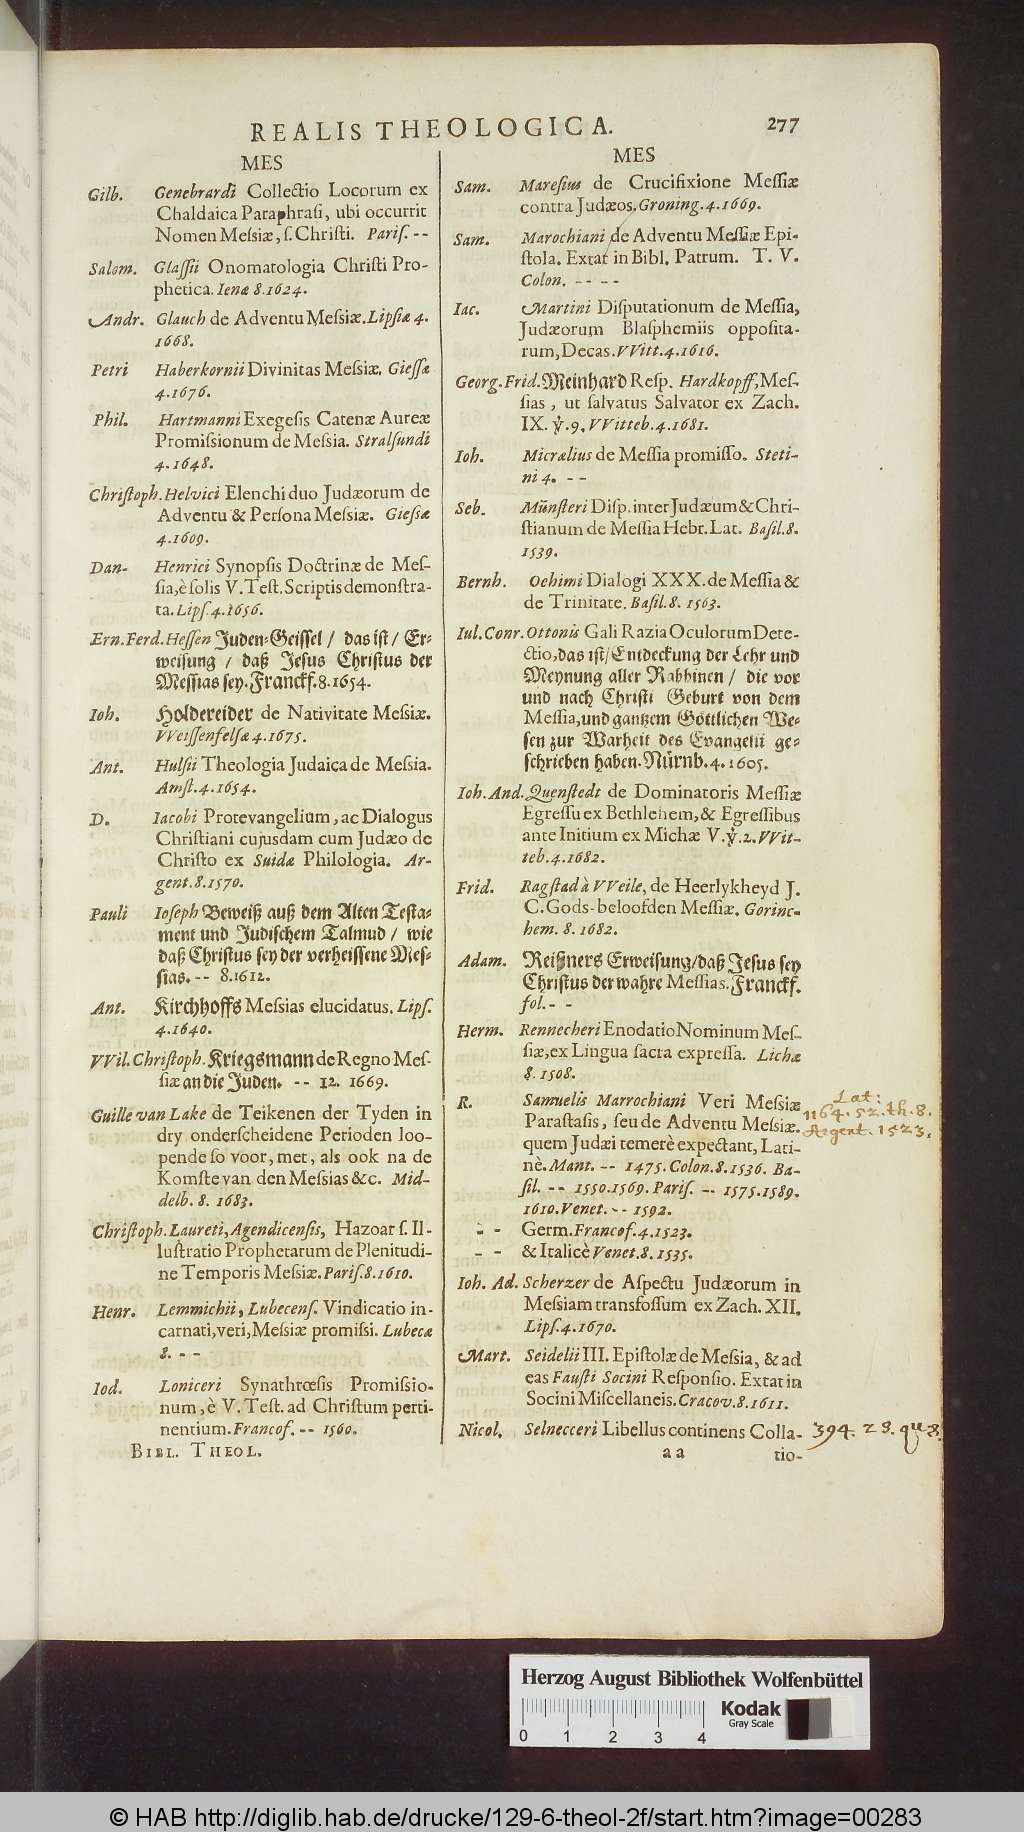 REALIS THEOLOGICA. 277
MES
Gilb. Genebrardi Collectio Locorum ex
Chaldaica Paraphrasi, ubi occurrit
Nomen Messiæ, s. Christi. Paris. --
Salom. Glassii Onomatologia Christi Pro-
phetica. Ienæ 8. 1624.
Andr. Glauch de Adventu Messiæ. Lipsiæ 4.
1668.
Petri Haberkornii Divinitas Messiæ. Giessæ
4. 1676.
Phil. Hartmanni Exegesis Catenæ Aureæ
Promissionum de Messia. Stralsundi
4. 1648.
Christoph. Helvici Elenchi duo Judæorum de
Adventu & Persona Messiæ. Giessæ
4. 1609.
Dan- Henrici Synopsis Doctrinæ de Mes-
sia, è solis V. Test. Scriptis demonstra-
ta. Lips. 4. 1656.
Ern. Ferd. Hessen Juden-Geissel / das ist / Er-
weisung / daß Jesus Christus der
Messias sey. Franckf. 8. 1654.
Ioh. Holdereider de Nativitate Messiæ.
VVeissenfelsæ 4. 1675.
Ant. Hulsii Theologia Judaica de Messia.
Amst. 4. 1654.
D. Iacobi Protevangelium, ac Dialogus
Christiani cujusdam cum Judæo de
Christo ex Suidæ Philologia. Ar-
gent. 8. 1570.
Pauli Ioseph Beweiß auß dem Alten Testa-
ment und Judischem Talmud / wie
daß Christus sey der verheissene Mes-
sias. -- 8. 1612.
Ant. Kirchhoffs Messias elucidatus. Lips.
4. 1640.
VVil. Christoph. Kriegsmann de Regno Mes-
siæ an die Juden. -- 12. 1669.
Guille van Lake de Teikenen der Tyden in
dry onderscheidene Perioden loo-
pende so voor, met, als ook na de
Komste van den Messias &c. Mid-
delb. 8. 1683.
Christoph. Laureti, Agendicensis, Hazoar s. Il-
lustratio Prophetarum de Plenitudi-
ne Temporis Messiæ. Paris. 8. 1610.
Henr. Lemmichii, Lubecens. Vindicatio in-
carnati, veri, Messiæ promissi. Lubecæ
8. --
Iod. Loniceri Synathrœsis Promissio-
num, è V. Test. ad Christum perti-
nentium. Francof. -- 1560.
BIBL. THEOL.
MES
Sam. Maresius de Crucifixione Messiæ
contra Judæos. Groning. 4. 1669.
Sam. Marochiani de Adventu Messiæ Epi-
stola. Extat in Bibl. Patrum. T. V.
Colon. -- --
Iac. Martini Disputationum de Messia,
Judæorum Blasphemiis opposita-
rum, Decas. VVitt. 4. 1616.
Georg. Frid. Meinhard Resp. Hardkopff, Mes-
sias, ut salvatus Salvator ex Zach.
IX. ℣. 9. VVitteb. 4. 1681.
Ioh. Micrælius de Messia promisso. Steti-
ni 4. --
Seb. Münsteri Disp. inter Judæum & Chri-
stianum de Messia Hebr. Lat. Basil. 8.
1539.
Bernh. Ochimi Dialogi XXX. de Messia &
de Trinitate. Basil. 8. 1563.
Iul. Conr. Ottonis Gali Razia Oculorum Dete-
ctio, das ist / Entdeckung der Lehr und
Meynung aller Rabbinen / die vor
und nach Christi Geburt von dem
Messia, und gantzem Göttlichen We-
sen zur Warheit des Evangelii ge-
schrieben haben. Nürnb. 4. 1605.
Ioh. And. Quenstedt de Dominatoris Messiæ
Egressu ex Bethlehem, & Egressibus
ante Initium ex Michæ V. ℣. 2. VVit-
teb. 4. 1682.
Frid. Ragstad à VVeile, de Heerlykheyd J.
C. Gods-beloofden Messiæ. Gorinc-
hem. 8. 1682.
Adam. Reißners Erweisung / daß Jesus sey
Christus der wahre Messias. Franckf.
fol. --
Herm. Rennecheri Enodatio Nominum Mes-
siæ, ex Lingua sacra expressa. Lichæ
8. 1508.
R. Samuelis Marrochiani Veri Messiæ
Parastasis, seu de Adventu Messiæ.
quem Judæi temerè expectant, Lati-
nè. Mant. -- 1475. Colon. 8. 1536. Ba-
sil. -- 1550. 1569. Paris. -- 1575. 1589.
1610. Venet. -- 1592.
-- Germ. Francof. 4. 1523.
-- & Italicè Venet. 8. 1535.
Lat:
1164. 52. th. 8.
Argent. 1523.
Ioh. Ad. Scherzer de Aspectu Judæorum in
Messiam transfossum ex Zach. XII.
Lips. 4. 1670.
Mart. Seidelii III. Epistolæ de Messia, & ad
eas Fausti Socini Responsio. Extat in
Socini Miscellaneis. Cracov. 8. 1611.
Nicol. Selnecceri Libellus continens Colla-
394. 28. qu 8.
aa tio-
Herzog August Bibliothek Wolfenbüttel
Kodak
Gray Scale
0 1 2 3 4
© HAB http://diglib.hab.de/drucke/129-6-theol-2f/start.htm?image=00283